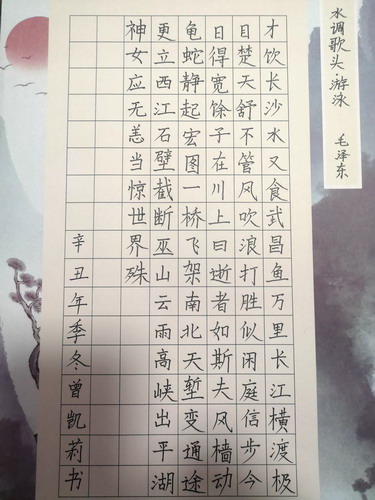 水调歌头 游泳
毛泽东
才饮长沙水又食武昌鱼万里长江横渡极
目楚天舒不管风吹浪打胜似闲庭信步今
日得宽馀子在川上曰逝者如斯夫风樯动
龟蛇静起宏图一桥飞架南北天堑变通途
更立西江石壁截断巫山云雨高峡出平湖
神女应无恙当惊世界殊
辛丑年季冬曾凯莉书